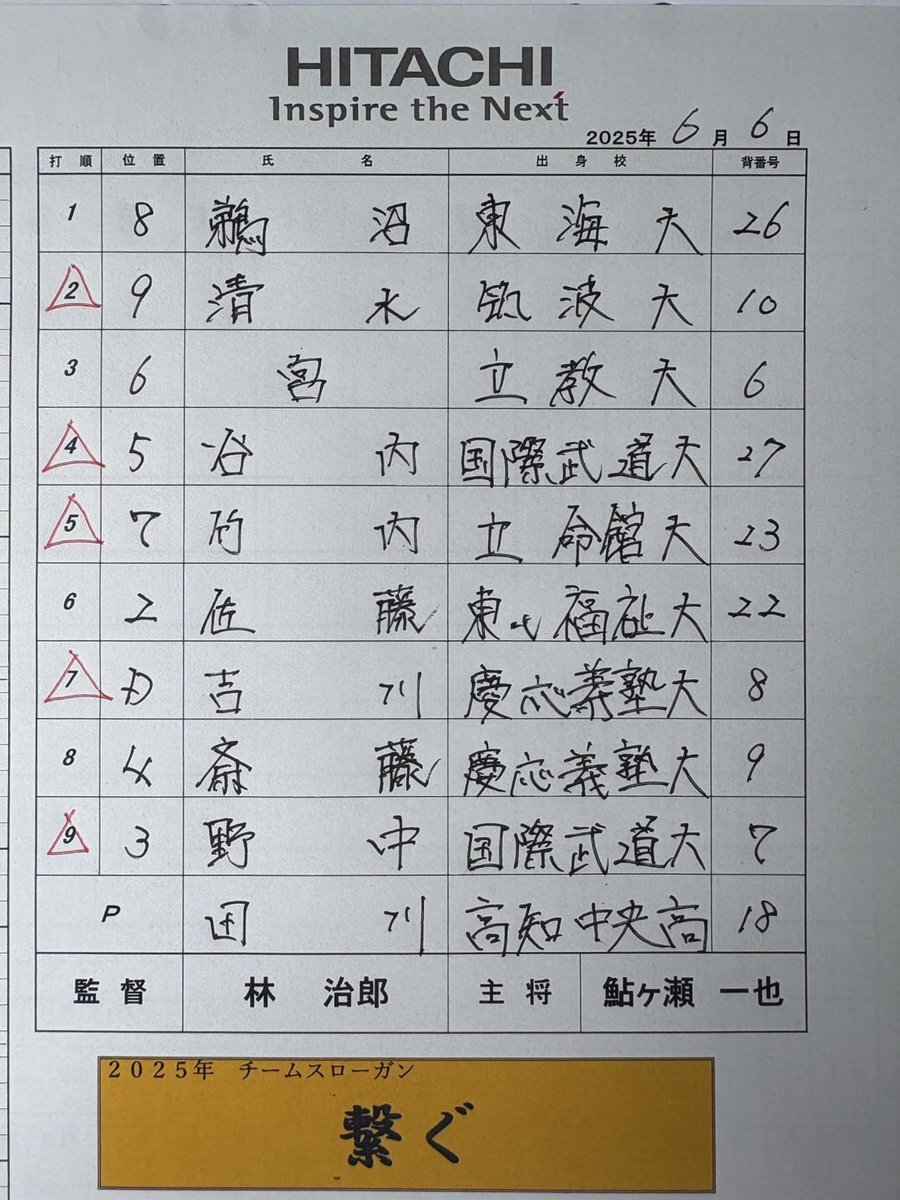 HITACHI
Inspire the Next
2025年 6月 6日
打順 位置 氏名 出身校 背番号
1 8 鵜沼 東海大 26
2 9 清水 筑波大 10
3 6 宮 立教大 6
4 5 谷内 国際武道大 27
5 7 竹内 立命館大 23
6 2 佐藤 東北福祉大 22
7 D 吉川 慶応義塾大 8
8 4 斎藤 慶応義塾大 9
9 3 野中 国際武道大 7
P 田川 高知中央高 18
監督 林 治郎 主将 鮎ヶ瀬 一也
2025年 チームスローガン
繋ぐ